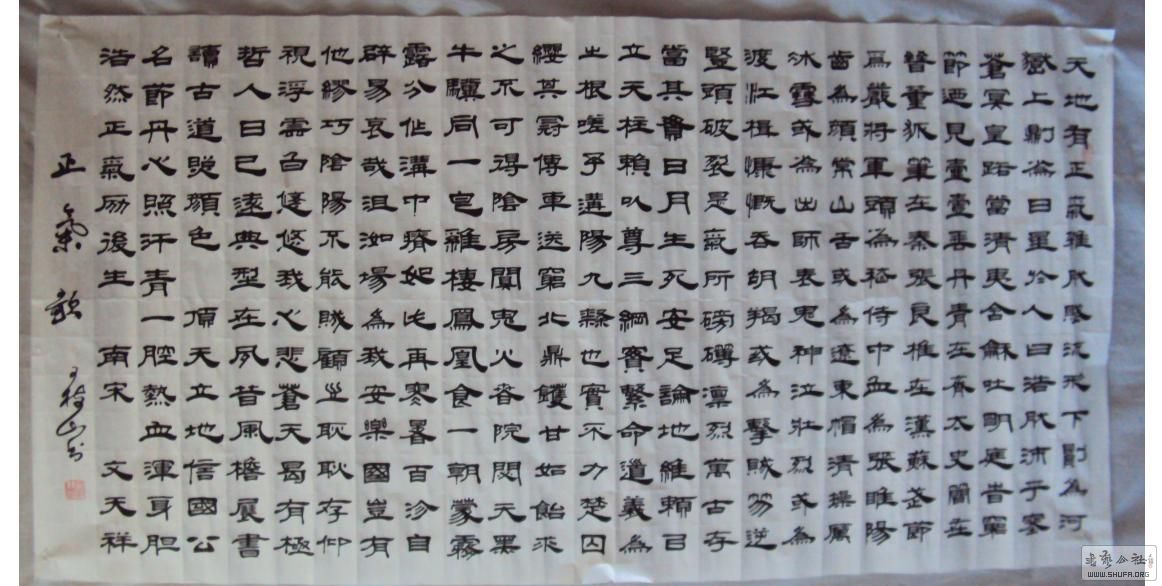 天地有正氣雜然賦流形下則為河
嶽上則為日星於人曰浩然沛乎塞
蒼冥皇路當清夷含龢吐明庭旹窮
節迺見壹壹垂丹青在齊太史簡在
晉董狐筆在秦張良椎在漢蘇武節
為嚴將軍頭為嵇侍中血為張睢陽
齒為顏常山舌或為遼東帽清操厲
冰雪或為出師表鬼神泣壯烈或為
渡江楫慷慨吞胡羯或為擊賊笏逆
豎頭破裂是氣所磅礡凜烈萬古存
當其貫日月生死安足論地維賴以
立天柱賴以尊三綱實繫命道義為
之根嗟乎遘陽九隸也實不力楚囚
纓其冠傳車送窮北鼎鑊甘如飴求
之不可得陰房闃鬼火春院閟天黑
牛驥同一皂雞棲鳳凰食一朝蒙霧
露分作溝中瘠如此再寒暑百沴自
辟易哀哉沮洳場為我安樂國豈有
他繆巧陰陽不能賊顧此耿耿存仰
視浮雲白悠悠我心悲蒼天曷有極
哲人日已遠典型在夙昔風檐展書
讀古道照顏色 頂天立地信國公
名節丹心照汗青一腔熱血渾身胆
浩然正氣励後生 南宋 文天祥
正氣歌
WWW.SHUFA.ORG